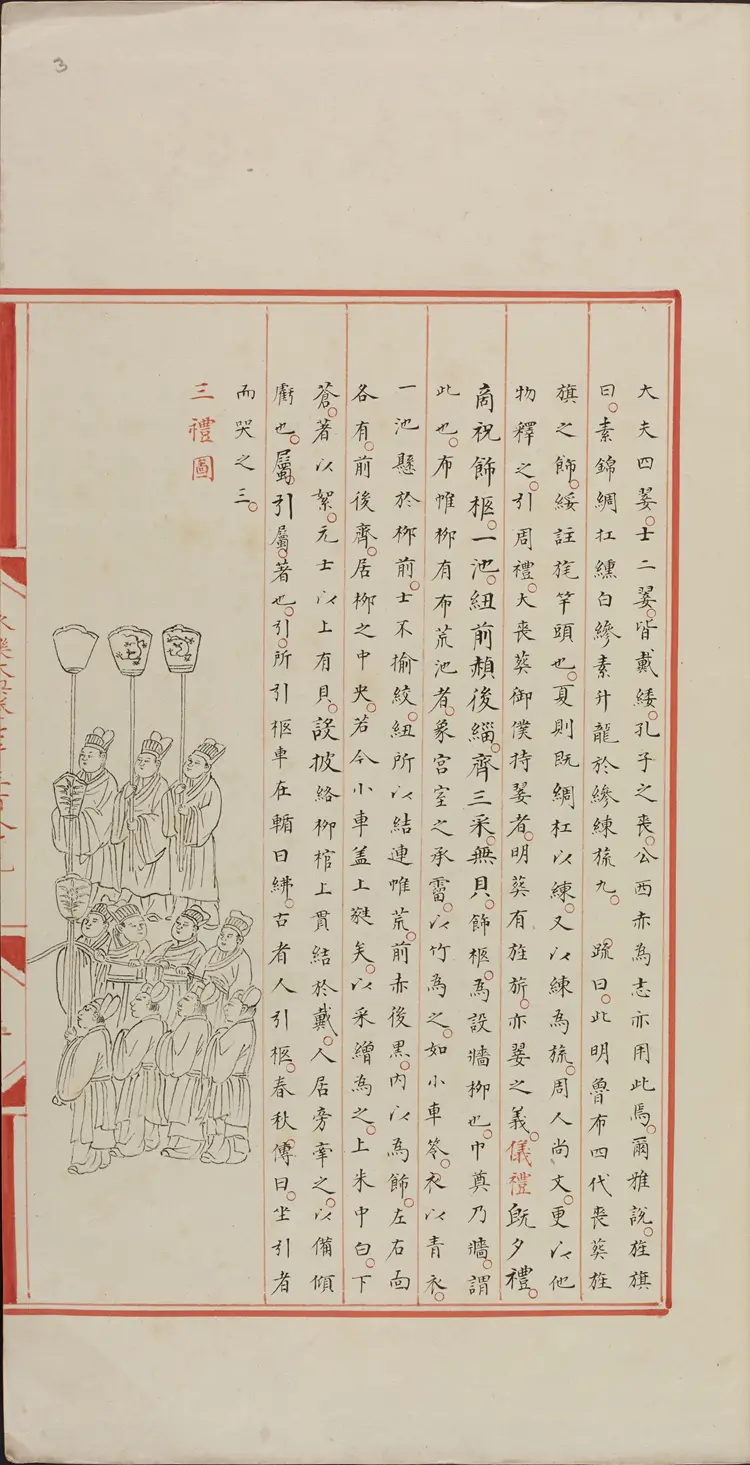 3
大夫四翣。士二翣。皆戴緌。孔子之喪。公西赤為志亦用此焉。爾雅說。旌旗
曰。素錦綢杠纁白縿素升龍於縿練旒九。 疏曰。此明魯布四代喪葬旌
旗之飾。綏註旄竿頭也。夏則既綢杠以練。又以練為旒。周人尚文。更以他
物釋之。引周禮。大喪葬御僕持翣者。明葬有旌旂。亦翣之義。儀禮旣夕禮。
商祝飾柩。一池。紐前赬後緇。齊三采。無貝。飾柩。為設牆柳也。巾奠乃牆。謂
此也。布帷柳有布荒池者。象宮室之承霤。以竹為之。如小車笭。衣以青衣。
一池懸於柳前。士不揄絞。紐所以結連帷荒。前赤後黑。內以為飾。左右面
各有。前後齊。居柳之中央。若今小車蓋上蕤矣。以采繒為之。上朱中白。下
蒼。著以絮。元士以上有貝。設披絡柳棺上貫結於戴。人居旁牽之。以備傾
虧也。屬引屬。著也。引。所引柩車在輴曰紼。古者人引柩。春秋。傳曰。坐引者
而哭之三。
三禮圖